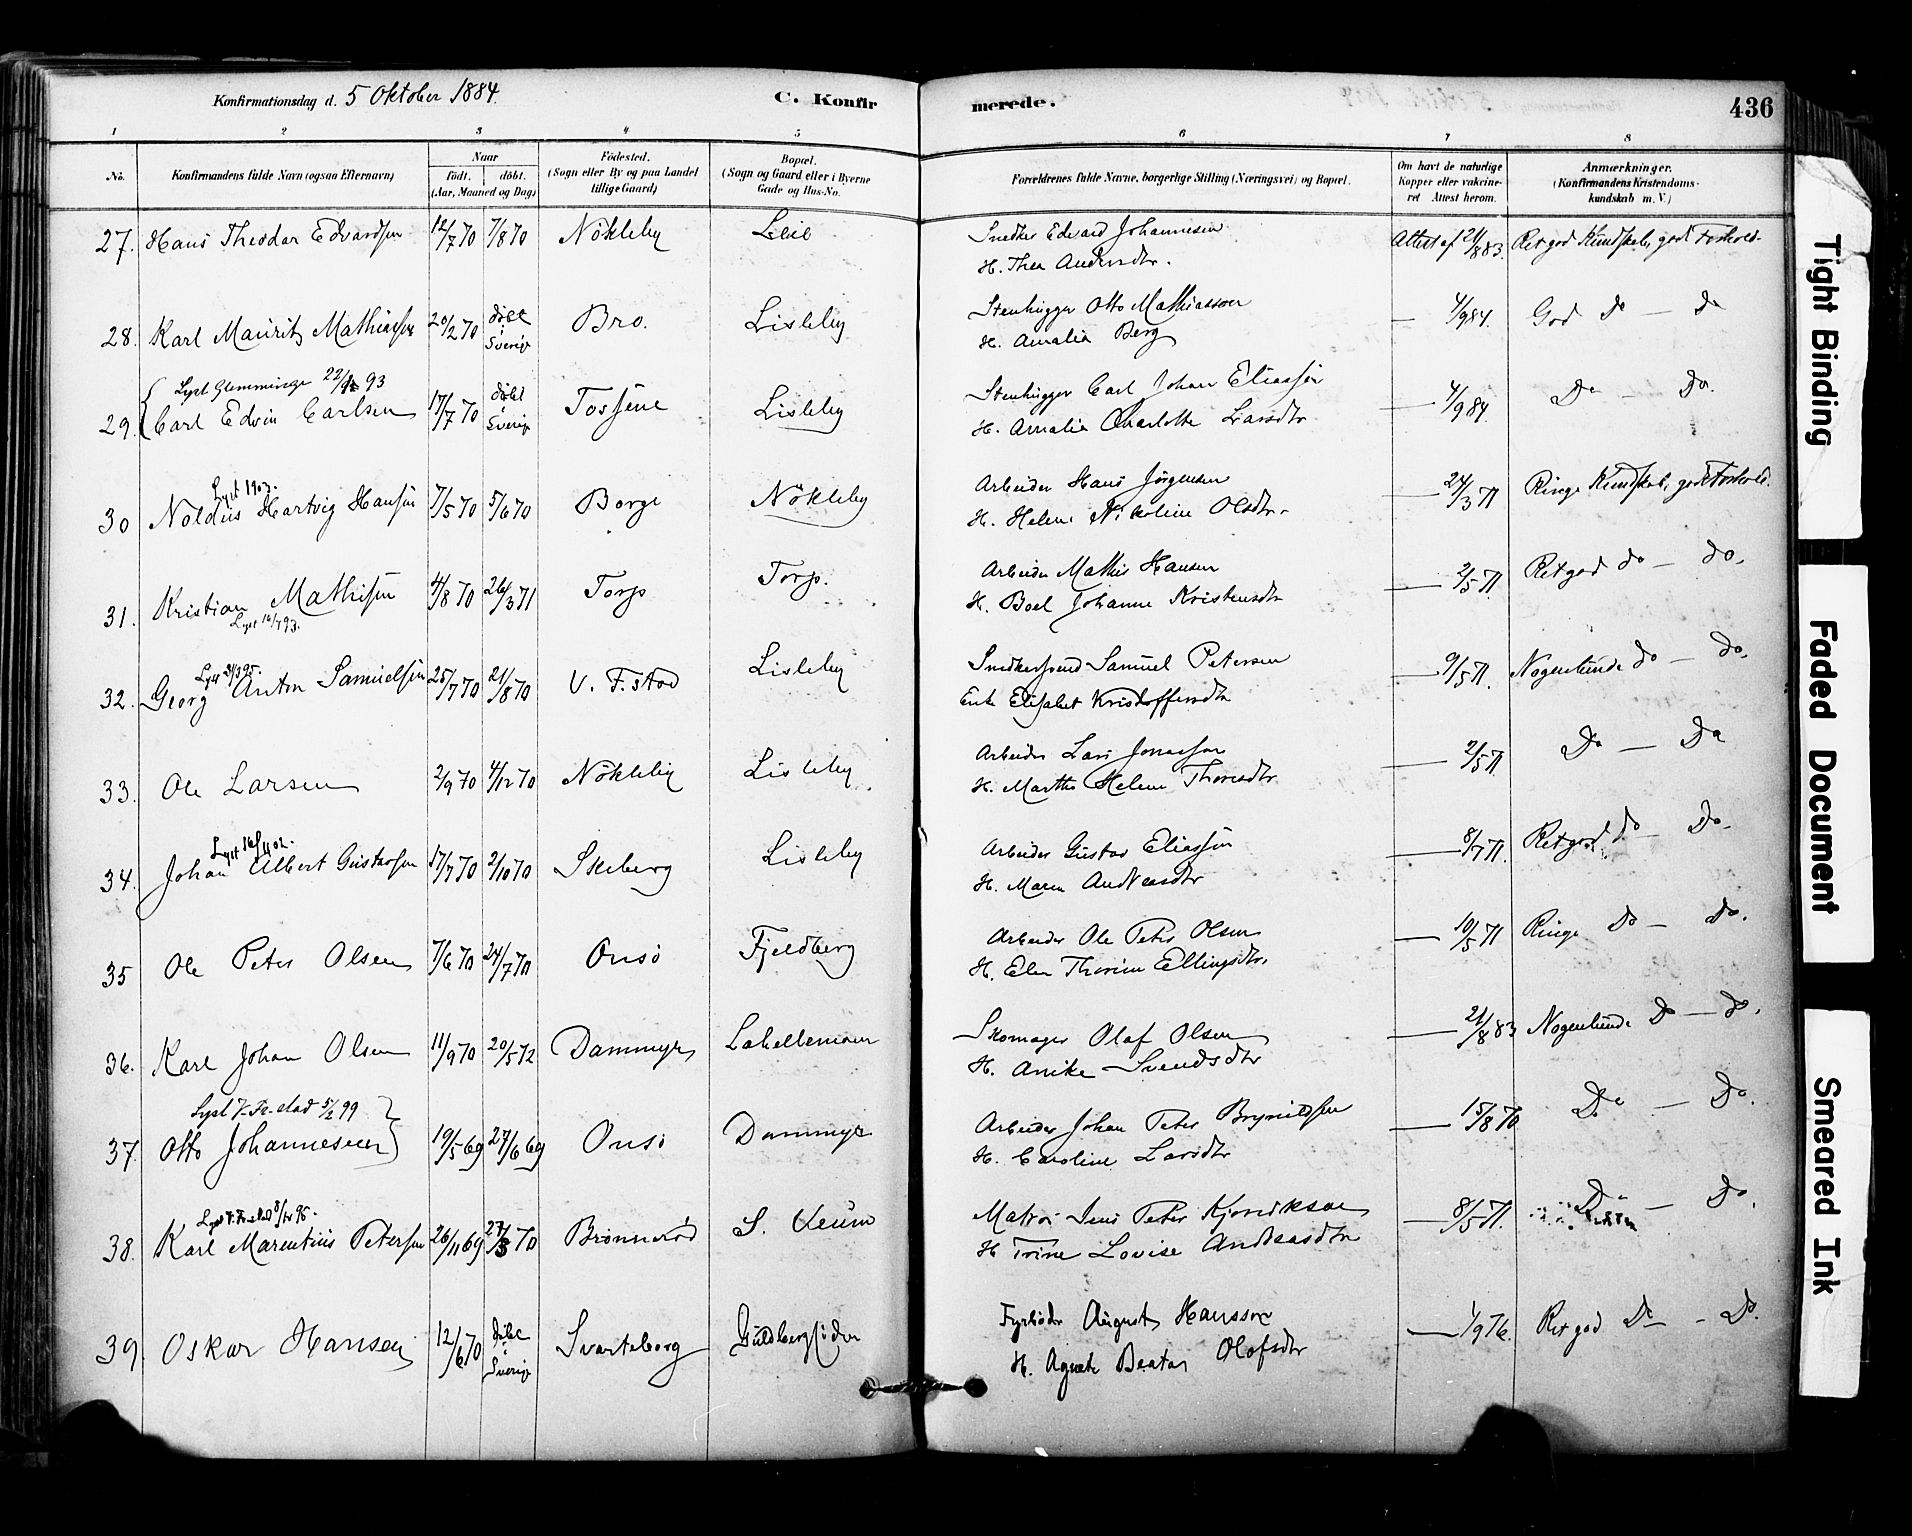 Konfirmationsdag d. 5 Oktober 1884. C. Konfirmerede. 436
1 2 3 4 5 6 7 8
No. Konfirmandens fulde Navn (ogsaa Efternavn) Naar födt. döbt. (Aar, Maaned og Dag) Födested. (Sogn eller By og paa Landet tillige Gaard) Bopæl. (Sogn og Gaard eller i Byerne Gade og Hus-No. Forældrenes fulde Navne, borgerlige Stilling (Næringsvei) og Bopæl. Om havt de naturlige Kopper eller vakcineret Attest herom. Anmærkninger. (Konfirmandens Kristendomskundskab m. V.)
27. Hans Theodor Edvardsen 12/7 70 7/8 70 Nökleby Leie Snedker Edvard Johannesen Attest af 21/8 83. Ret god Kundskab, god Forhold.
H. Thea Andersdtr.
28. Karl Mauritz Mathiassen 20/2 70 döbt i Sverige Bro. Lisleby Stenhugger Otto Mathiassen — 4/9 84. God do — do
H. Amalia Berg
Lyst Glemminge 93
29. Carl Edvin Carlsen 17/7 70 döbt i Sverige Tossene Lisleby Stenhugger Carl Johan Eliassen — 4/9 84. Do — Do.
H. Amalia Charlotte Larsdtr
Lyst 1903.
30 Noldus Hartvig Hansen 7/5 70 5/6 70 Borge Nökleby Arbeider Hans Jörgensen — 24/3 71 Ringe Kundskab, god Forhold.
H. Helene Nikoline Olsdtr.
31. Kristian Mathisen 4/8 70 26/3 71 Torp Torp. Arbeider Mathis Hansen — 2/5 71. Ret god do — do.
Lyst 16/7 93. H. Boel Johanne Kristensdtr
Lyst 95.
32. Georg Anton Samuelsen 25/7 70 21/8 70 V. F.stad Lisleby Snedkersvend Samuel Petersen — 9/5 71. Nogenlunde do — do.
Enke Elisabet Kristoffersdtr
33. Ole Larsen 2/9 70 4/12 70 Nökleby Lisleby Arbeider Lars Jonassen — 2/5 71 Do — Do
H. Marthe Helene Thoresdtr
Lyst
34. Johan Albert Gustavsen 17/7 70 2/10 70 Skeberg Lisleby Arbeider Gustav Eliassen — 8/7 71. Ret god do — Do.
H. Maren Andreasdtr
35 Ole Peter Olsen 7/6 70 24/7 70 Onsö Fjeldberg Arbeider Ole Peter Olsen — 10/5 71 Ringe Do — do.
H. Elen Thorine Ellingsdtr.
36. Karl Johan Olsen 11/9 70 20/5 72 Dammyr Labellemoen Skomager Olaf Olsen — 21/8 83 Nogenlunde Do — do.
H. Anike Svendsdtr
Lyst V. Fr.stad 5/2 99
37. Otto Johannesen 19/5 69 27/6 69 Onsö Dammyr Arbeider Johan Peter Brynildsen — 15/8 70 Do — Do.
H. Caroline Larsdtr
Lyst V. Fr.stad 95.
38. Karl Marentius Petersen 26/11 69 27/3 70 Brönneröd S. Leum Matros Jens Peter Kjondksen — 8/5 71. Do — Do.
H Trine Lovise Andreasdtr
39. Oskar Hansen 12/6 70 döbt i Sverige Svarteborg Guldbergsiden Fyrböder August Hansson — 1/9 76. Ret god Do — Do.
H. Agnete Beata Olofsdtr
Tight Binding
Faded Document
Smeared Ink